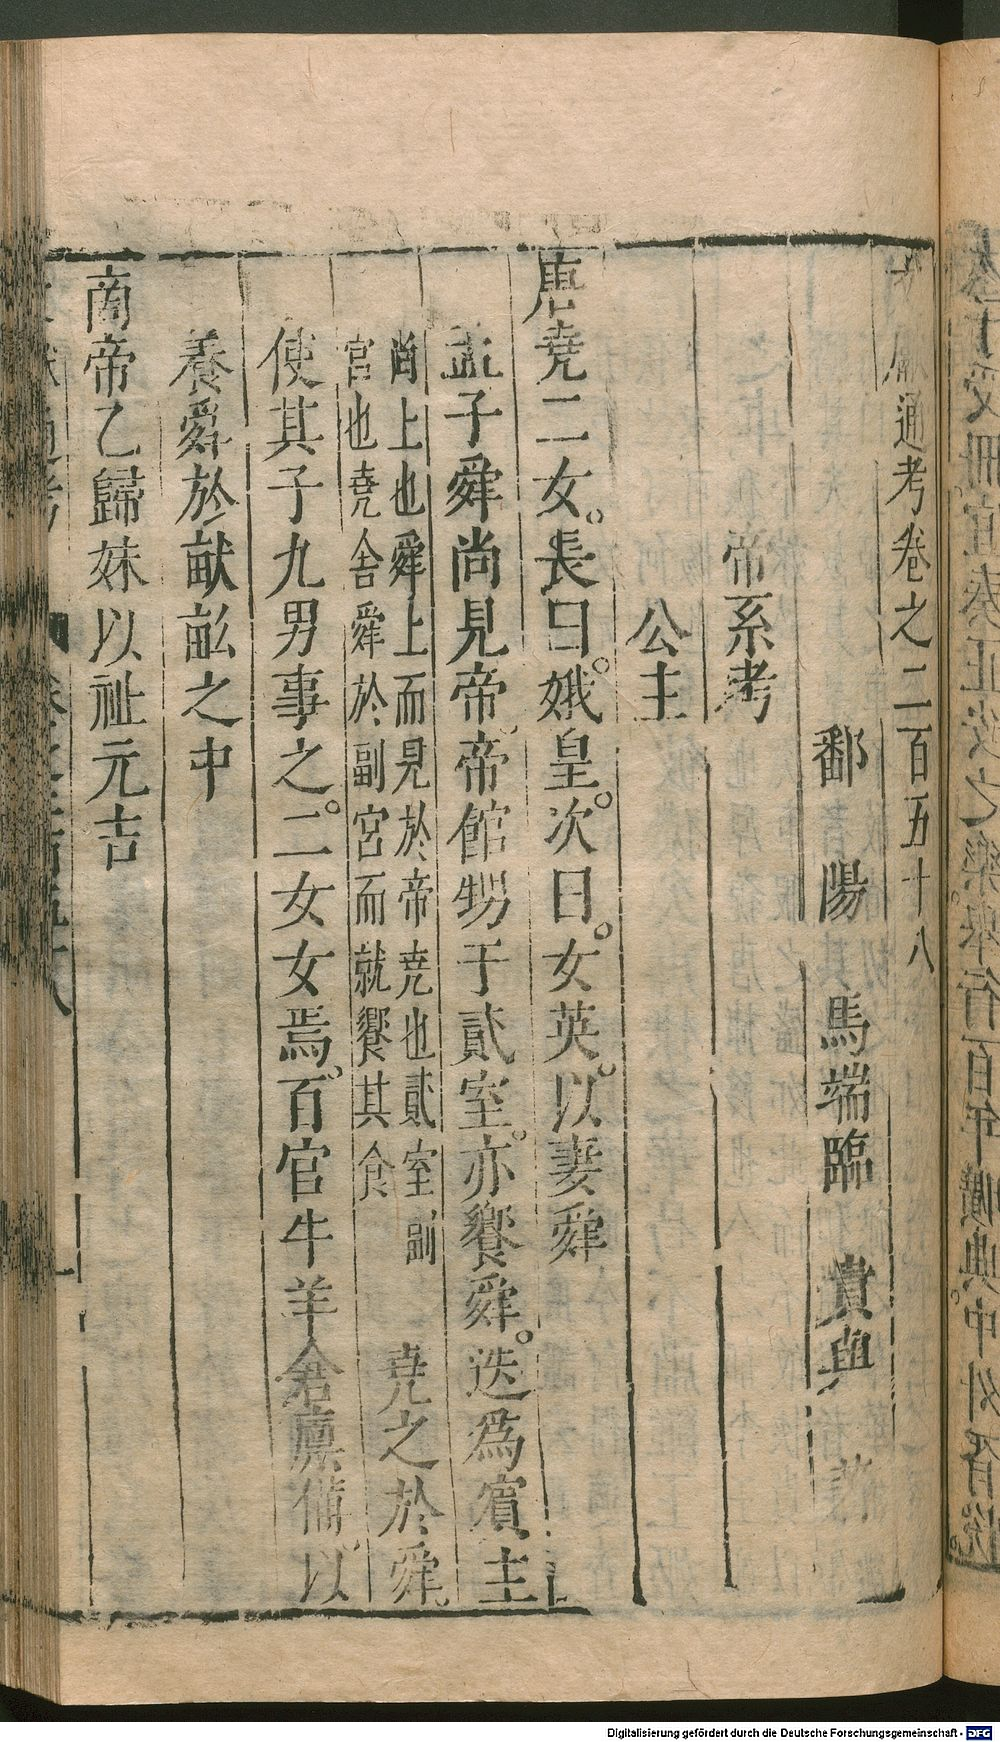 文獻通考卷之二百五十八
鄱陽馬端臨貴與著
帝系考
公主
唐堯二女。長曰。娥皇。次曰。女英。以妻舜
孟子舜尚見帝。帝館甥于貳室。亦饗舜。迭爲賓主
尚上也舜上而見於帝堯也貳室副
宮也堯舍舜於副宮而就饗其食
堯之於舜。
使其子九男事之。二女女焉。百官牛羊倉廪備。以
養舜於畎畝之中
商帝乙歸妹以祉元吉
Digitalisierung gefördert durch die Deutsche Forschungsgemeinschaft - DFG